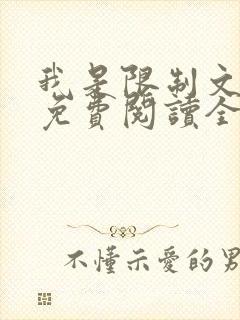 我是限制文
免費閱讀全
不懂示愛的男